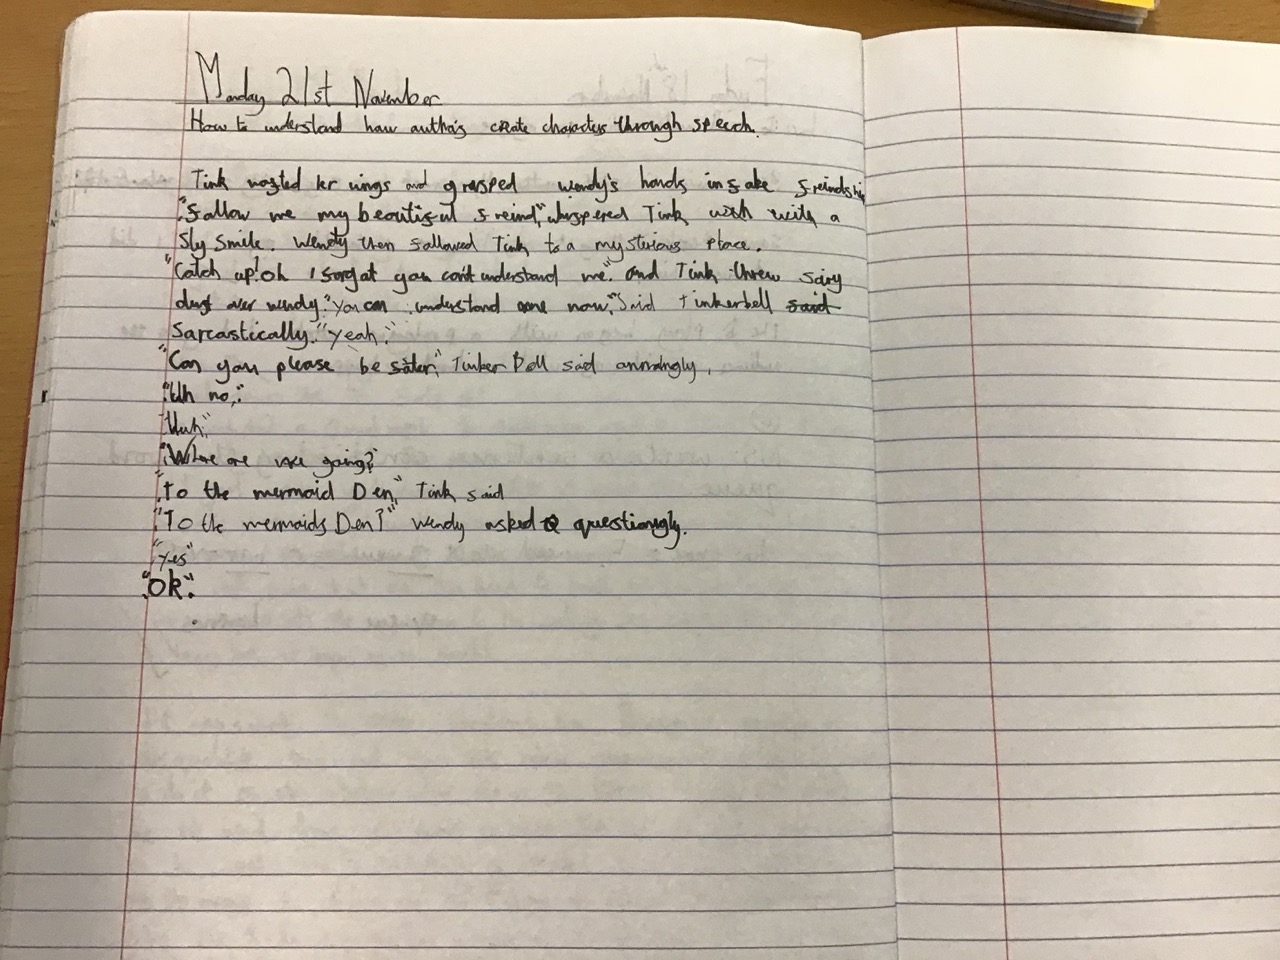 Monday 21st November
How to understand how authors create characters through speech.
Tink wafted her wings and grasped Wendy's hands in fake freindship
"follow me my beautiful freind," whispered Tink with with a
sly smile. Wendy then followed Tink to a mysterious place.
"Catch up! Oh I forgot you can't understand me." and Tink threw
dust over wendy. "You can understand me now." Said tinkerbell said
Sarcastically. "Yeah."
"Can you please be" Tinker Bell said annoyingly.
"Uh no,"
"Huh."
"Where are we going?"
"To the mermaid Den," Tink said
"To the mermaids Den?" Wendy asked questioningly.
"Yes"
"Ok".